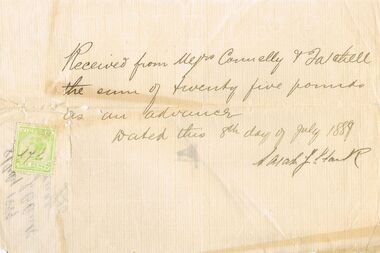 Received from Messrs Connelly & Tatchell
the sum of twenty five pounds
as an advance
Dated this 8th day of July 1889
Sarah J